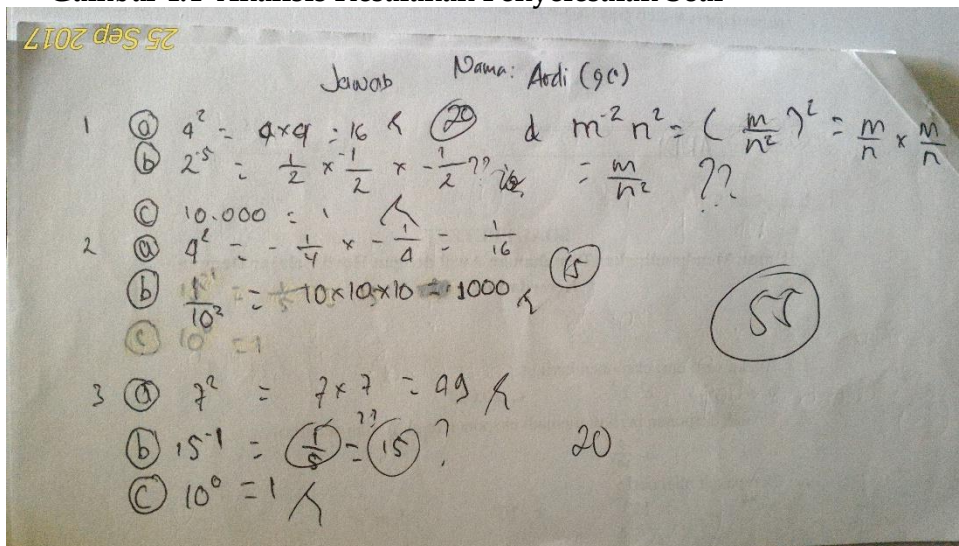 Gambar 4.1 Analisis Kesalahan Penyelesaian Soal
25 Sep 2017
Jawab Nama: Ardi (9C)
1 a 4² = 4×4 = 16 20
b 2⁻⁵ = 1/2 × -1/2 × -1/2 ??
c 10.000 = 1
d m⁻² n² = (m/n²)² = m/n × m/n
= m/n² ??
2 a 4² = -1/4 × -1/4 = 1/16
b 1/10² = 10×10×10 = 1000 15
c 10⁰ = 1
55
3 a 7² = 7×7 = 49
b 15⁻¹ = 1/5 = 15 ?
??
20
c 10⁰ = 1